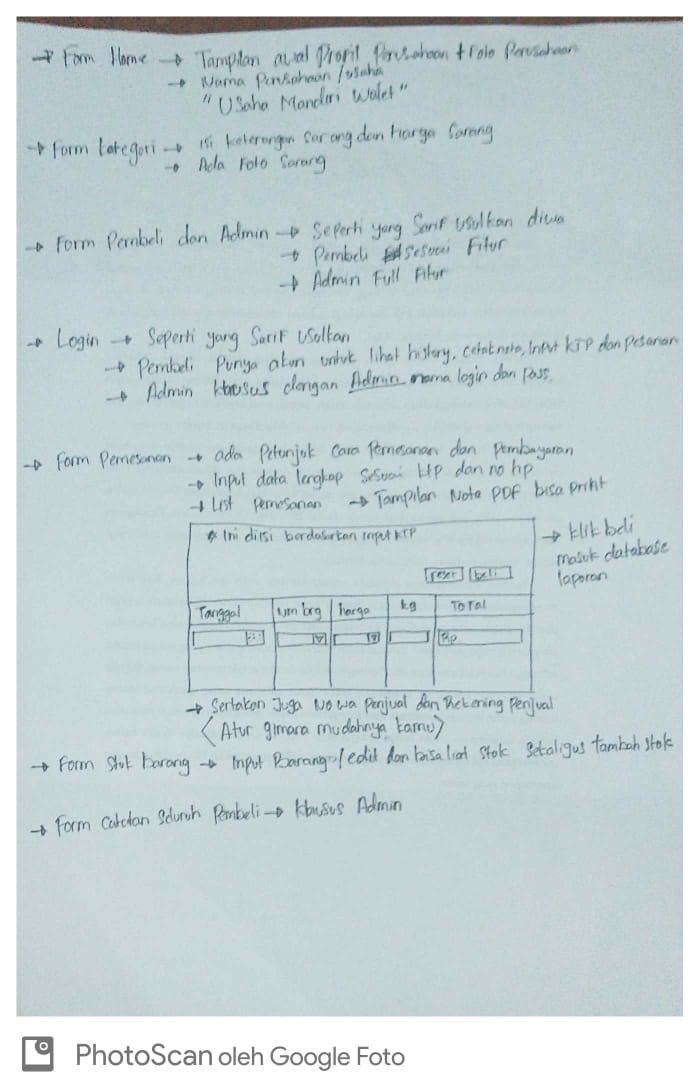 → Form Home → Tampilan awal Profil Perusahaan + Foto Perusahaan
→ Nama Perusahaan / usaha
"Usaha Mandiri Walet"
→ Form kategori → isi keterangan Sarang dan Harga Sarang
→ Ada Foto Sarang
→ Form Pembeli dan Admin → Seperti yang Sarif usulkan di wa
→ Pembeli sesuai Fitur
→ Admin Full Fitur
→ Login → Seperti yang Sarif usulkan
→ Pembeli Punya akun untuk lihat history, cetak nota, Input KTP dan pesanan
→ Admin khusus dengan Admin nama login dan pass.
→ Form Pemesanan → ada Petunjuk Cara Pemesanan dan Pembayaran
→ Input data lengkap sesuai ktp dan no hp
→ List Pemesanan → Tampilan Nota PDF bisa print
* Ini diisi berdasarkan input KTP
→ klik beli
masuk database
laporan
reset beli
Tanggal nm brg harga kg Total
Rp
→ Sertakan Juga No wa Penjual dan Rekening Penjual
(Atur gimana mudahnya kamu)
→ Form Stok barang → Input Barang / edit dan bisa liat Stok Sekaligus tambah stok
→ Form Catatan Seluruh Pembeli → khusus Admin
PhotoScan oleh Google Foto